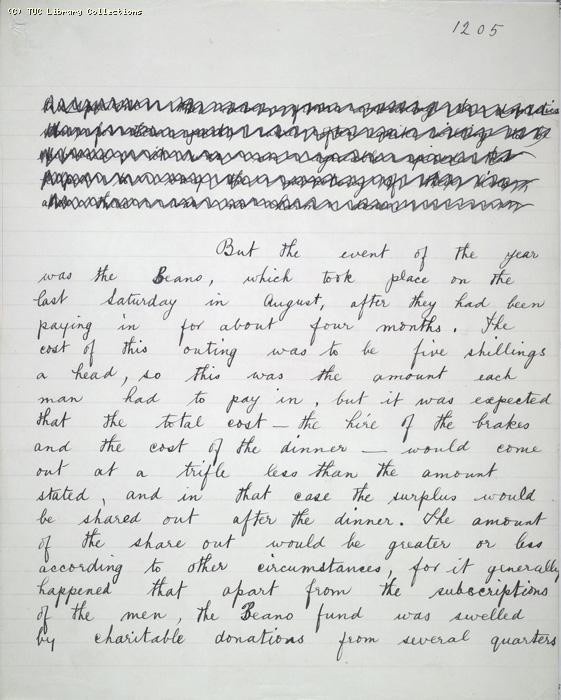 (C) TUC Library Collections
1205
But the event of the year
was the Beano, which took place on the
last Saturday in August, after they had been
paying in for about four months. The
cost of this outing was to be five shillings
a head, so this was the amount each
man had to pay in, but it was expected
that the total cost — the hire of the brakes
and the cost of the dinner — would come
out at a trifle less than the amount
stated, and in that case the surplus would
be shared out after the dinner. The amount
of the share out would be greater or less
according to other circumstances, for it generally
happened that apart from the subscriptions
of the men, the Beano fund was swelled
by charitable donations from several quarters